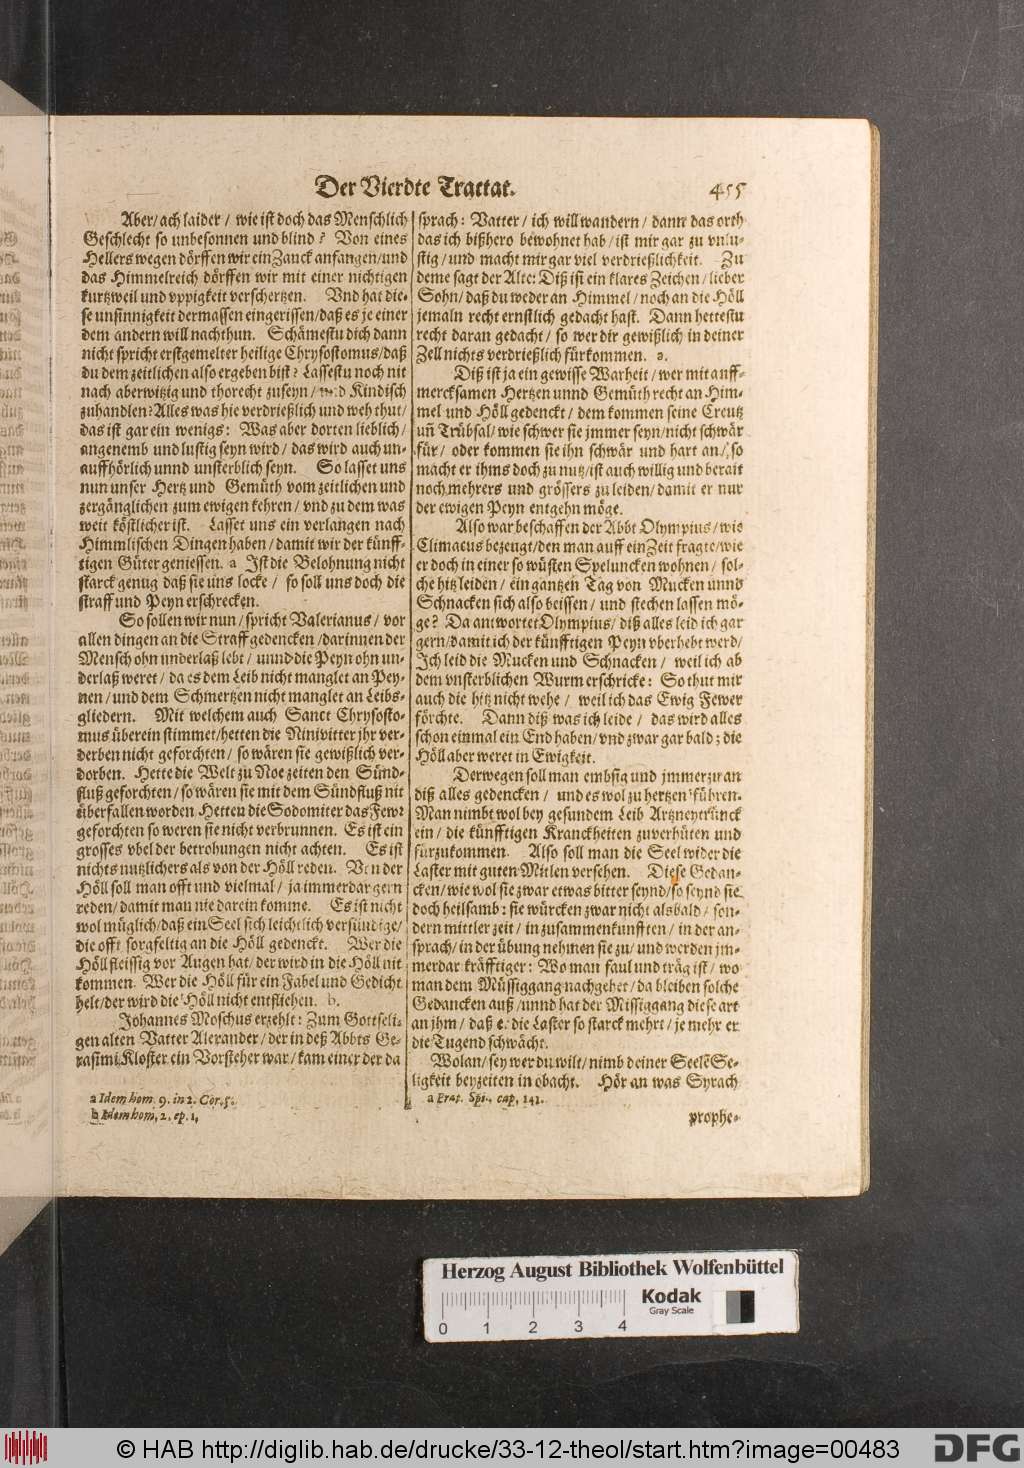 Der Vierdte Tractat. 455
Aber/ ach laider / wie ist doch das Menschlich
Geschlecht so unbesonnen und blind? Von eines
Hellers wegen dörffen wir ein Zanck anfangen/und
das Himmelreich dörffen wir mit einer nichtigen
kurtzweil und vppigkeit verschertzen. Vnd hat die-
se unsinnigkeit dermassen eingerissen/daß es je einer
dem andern will nachthun. Schämestu dich dann
nicht spricht erstgemelter heilige Chrysostomus/daß
du dem zeitlichen also ergeben bist? Lassestu noch nit
nach aberwitzig und thorecht zuseyn/ und Kindisch
zuhandlen? Alles was hie verdrießlich und weh thut/
das ist gar ein wenigs: Was aber dorten lieblich/
angenemb und lustig seyn wird/ das wird auch un-
auffhörlich unnd unsterblich seyn. So lasset uns
nun unser Hertz und Gemüth vom zeitlichen und
zergänglichen zum ewigen kehren/ vnd zu dem was
weit köstlicher ist. Lasset uns ein verlangen nach
Himmlischen Dingen haben/ damit wir der künff-
tigen Güter geniessen. a Ist die Belohnung nicht
starck genug daß sie uns locke/ so soll uns doch die
straff und Peyn erschrecken.
So sollen wir nun/ spricht Valerianus/ vor
allen dingen an die Straff gedencken/darinnen der
Mensch ohn underlaß lebt/ unnd die Peyn ohn un-
derlaß weret/ da es dem Leib nicht manglet an Pey-
nen/ und dem Schmertzen nicht manglet an Leibs-
gliedern. Mit welchem auch Sanct Chrysosto-
mus überein stimmet/hetten die Ninivitter jhr ver-
derben nicht geforchten/ so wären sie gewißlich ver-
dorben. Hette die Welt zu Noe zeiten den Sünd-
fluß geforchten/ so wären sie mit dem Sündfluß nit
überfallen worden Hetten die Sodomiter das Fewr
geforchten so weren sie nicht verbrunnen. Es ist ein
grosses vbel der betrohungen nicht achten. Es ist
nichts nutzlichers als von der Höll reden. Von der
Höll soll man offt und vielmal/ ja immerdar gern
reden/ damit man nie darein komme. Es ist nicht
wol müglich/daß ein Seel sich leichtlich versündige/
die offt sorgfeltig an die Höll gedenckt. Wer die
Höll fleissig vor Augen hat/ der wird in die Höll nit
kommen. Wer die Höll für ein Fabel und Gedicht
helt/der wird die Höll nicht entfliehen. b.
Johannes Moschus erzehlt: Zum Gottseli-
gen alten Vatter Alexander/ der in deß Abbts Ge-
rasimi Kloster ein Vorsteher war/ kam einer der da
a Idem hom. 9. in 2. Cor. 5.
b Idem hom. 2. ep. 1.
sprach: Vatter/ ich will wandern/ dann das orth
das ich bißhero bewohnet hab/ ist mir gar zu vnlu-
stig/ und macht mir gar viel verdrießlichkeit. Zu
deme sagt der Alte: Diß ist ein klares Zeichen/ lieber
Sohn/ daß du weder an Himmel/ noch an die Höll
jemaln recht ernstlich gedacht hast. Dann hettestu
recht daran gedacht/ so wer dir gewißlich in deiner
Zell nichts verdrießlich fürkommen. a.
Diß ist ja ein gewisse Warheit/ wer mit auff-
mercksamen Hertzen unnd Gemüth recht an Him-
mel und Höll gedenckt/ dem kommen seine Creutz
uñ Trübsal/ wie schwer sie jmmer seyn/nicht schwär
für/ oder kommen sie ihn schwär und hart an/ so
macht er ihms doch zu nutz/ist auch willig und berait
noch mehrers und grössers zu leiden/ damit er nur
der ewigen Peyn entgehn möge.
Also war beschaffen der Abbt Olympius/ wie
Climacus bezeugt/den man auff ein Zeit fragte/wie
er doch in einer so wüsten Spelunckenwohnen/ sol-
che hitz leiden/ ein gantzen Tag von Mucken unnd
Schnacken sich also beissen/ und stechen lassen mö-
ge? Da antwortet Olympius/ diß alles leid ich gar
gern/damit ich der künfftigen Peyn vberhebt werd/
Ich leid die Mucken und Schnacken/ weil ich ab
dem vnsterblichen Wurm erschricke: So thut mir
auch die hitz nicht wehe/ weil ich das Ewig Fewer
förchte. Dann diß was ich leide/ das wird alles
schon einmal ein End haben/ vnd zwar gar bald; die
Höll aber weret in Ewigkeit.
Derwegen soll man embsig und jmmerzu an
diß alles gedencken/ und es wol zu hertzen führen.
Man nimbt wol bey gesundem Leib Artzneytrünck
ein/ die künfftigen Kranckheiten zuverhüten und
fürzukommen. Also soll man die Seel wider die
Laster mit guten Mitlen versehen. Diese Gedan-
cken/ wie wol sie zwar etwas bitter seynd/so seynd sie
doch heilsamb: sie würcken zwar nicht alsbald/ son-
dern mittler zeit/ in zusammenkunfften/ in der an-
sprach/ in der übung nehmen sie zu/ und werden jm-
merdar kräfftiger: Wo man faul und träg ist/ wo
man dem Müssiggang nachgehet/ da bleiben solche
Gedancken auß/ unnd hat der Missiggang diese art
an jhm/ daß e. die Laster so starck mehrt/ je mehr er
die Tugend schwächt.
Wolan/ sey wer du wilt/ nimb deiner Seelẽ Se-
ligkeit beyzeiten in obacht. Hör an was Syrach
a Prat. Spi., cap, 141.
prophe-
Herzog August Bibliothek Wolfenbüttel
Kodak
Gray Scale
0 1 2 3 4
© HAB http://diglib.hab.de/drucke/33-12-theol/start.htm?image=00483
DFG